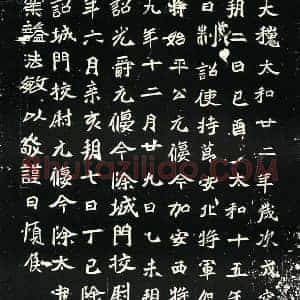 大魏太和廿二年歲次戊
朔二日己酉 太和十五年
日制詔使持節安北將軍
將始平公元偃今加安西將
九年十二月廿九日乙未朔
詔光爵元偃今除城門校尉
年六月辛亥朔七日丁巳除
詔城門校尉元偃今除太中
案謚法敏以敬謹曰順侯